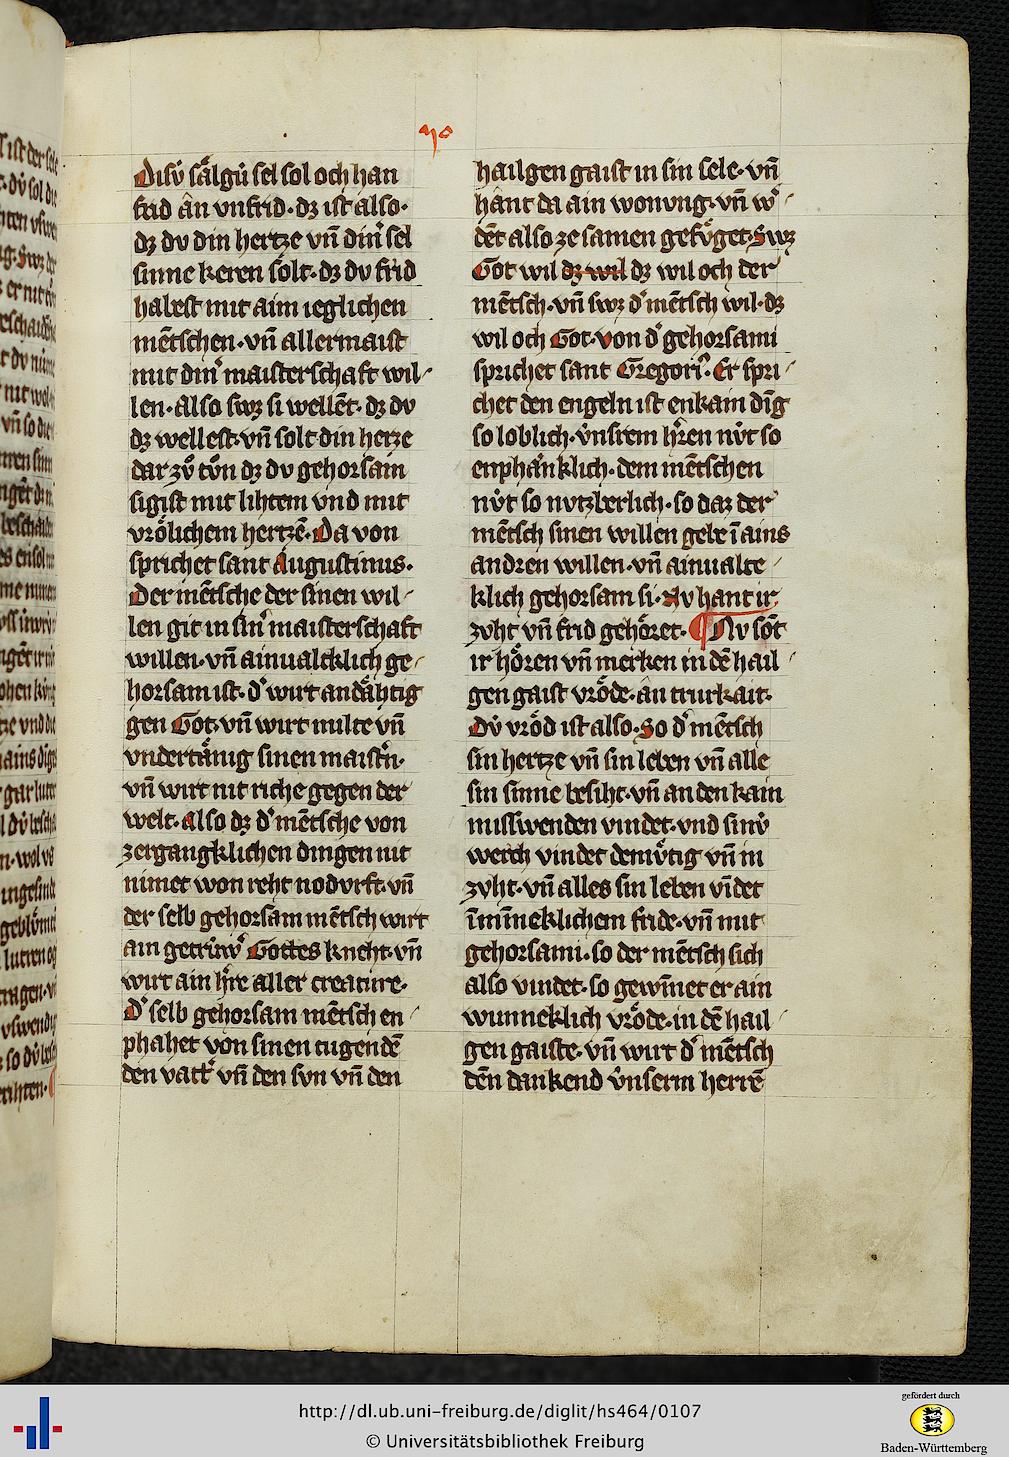 Disv́ sa̍lgu̍ sel sol och han
frid ân vnfrid · dʒ ist also ·
dʒ dv din hertze vn̄ din̾ sel
sinne keren solt · dʒ dv frid
halest mit aim ieglichen
mētschen · vn̄ allermaist
mit din̾ maisterschaft wil
len · Also swʒ si wellēt · dʒ dv
dʒ wellest · vn̄ solt din herze
dar zv̊ tv̊n dʒ dv gehorsam
sigist mit lihtem vnd mit
vrȯlichem hertzē · Da von
sprichet sant Augustinus ·
Der mētsche der sinen wil
len git in sin̾ maisterschaft
willen · vn̄ ainualtklich ge
horsam ist · d̾ wirt anda̍htig
gen Got · vn̄ wirt milte vn̄
vnderta̍nig sinen maist̾n ·
vn̄ wirt nit riche gegen der
welt · also dʒ d̾ mētsche von
zergangklichen dingen nit
nimet won reht nodvrft · vn̄
der selb gehorsam mētsch wirt
ain getru̍w̾ Gottes kneht · vn̄
wirt ain h̾re aller creature ·
D̾ selb gehorsam mētsch en
phahet von sinen tugendē
den vatt̾ vn̄ den svn vn̄ den
hailgen gaist in sin sele · vn̄
hânt da ain wonvng · vn̄ w̾
dēt also ze samen gefv̊get · Swʒ
Got wil dʒ wil dʒ wil och der
mētsch · vn̄ swʒ d̾ mētsch wil · dʒ
wil och Got · von d̾ gehorsami
sprichet sant Gregori̾ · Er spri
chet den engeln ist enkain dīg
so loblich · v́nsrem h̾ren nv́t so
enpha̍nklich · dem mētschen
nv́t so nvtzberlich · so daz der
mētsch sinen willen gebe ī ains
andren willen · vn̄ ainualte
klich gehorsam si · Nv hant ir
zvht vn̄ frid gehȯret · ¶ Nv sōt
ir hȯren vn̄ merken in dē hail
gen gaist vrȯde · ân trurkait ·
Dv́ vrȯd ist also · So d̾ mētsch
sin hertze vn̄ sin leben vn̄ alle
sin sinne besiht · vn̄ an den kain
misswenden vindet · vnd sinv́
werch vindet demv̊tig vn̄ in
zvht · vn̄ alles sin leben vīdet
ī mīneklichem fride · vn̄ mit
gehorsami · so der mētsch sich
also vindet · so gewīnet er ain
wunneklich vrȯde · in dē hail
gen gaiste · vn̄ wirt d̾ mētsch
dēn dankend v́nserm herrē
http://dl.ub.uni-freiburg.de/diglit/hs464/0107
© Universitätsbibliothek Freiburg
gefördert durch
Baden-Württemberg